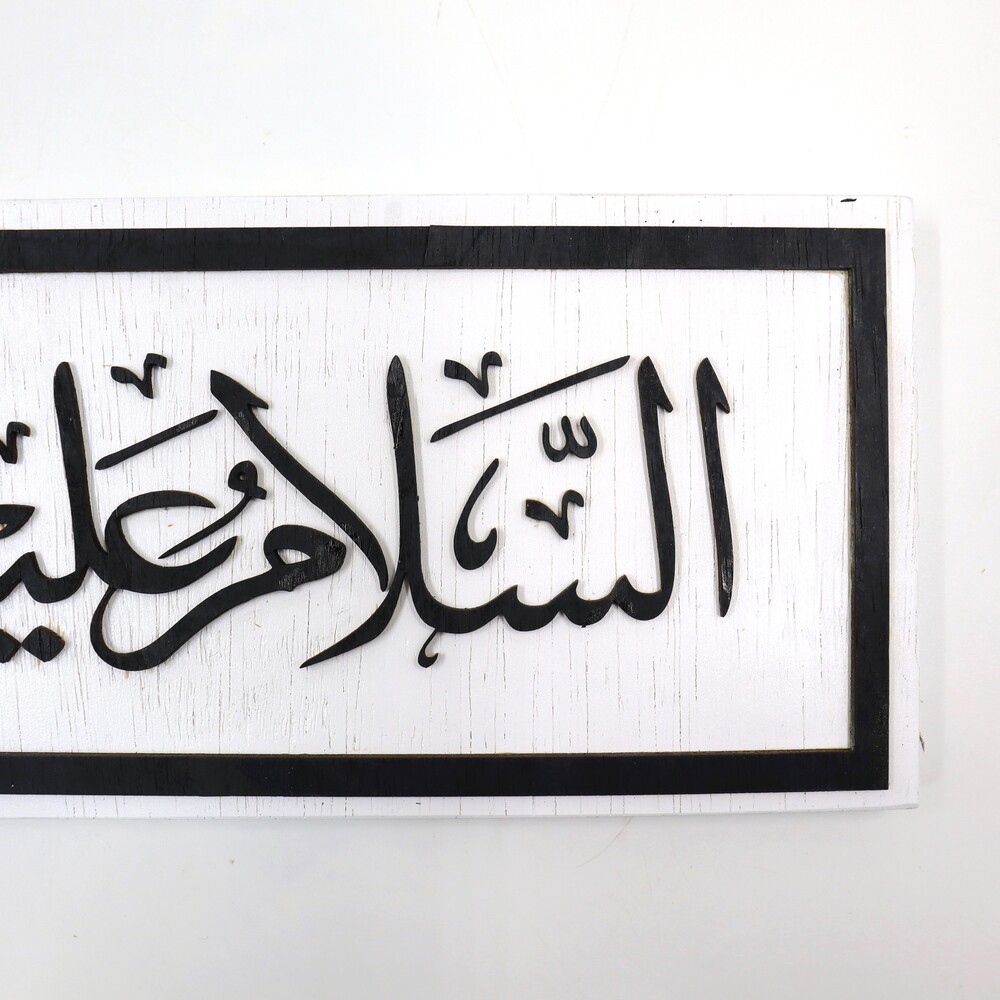 السَّلَامُ عَلَي